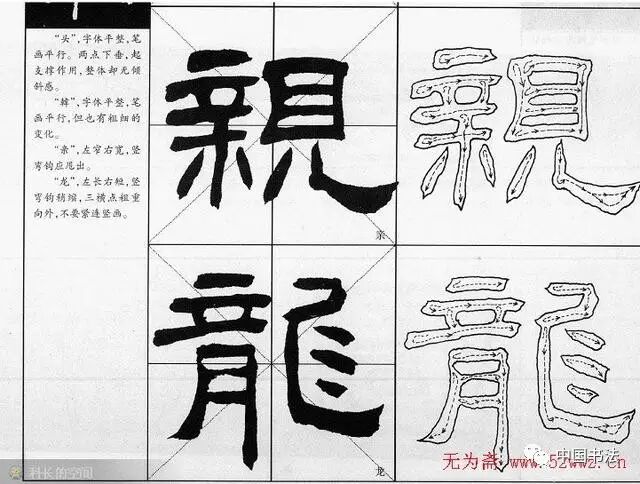 “头”，字体平整，笔
画平行。两点下垂，起
支撑作用，整体却无倾
斜感。
“韩”，字体平整，笔
画平行，但也有粗细的
变化。
“亲”，左窄右宽，竖
弯钩应甩出。
“龙”，左长右短，竖
弯钩稍缩，三横点粗重
向外，不要紧连竖画。
親
親
亲
龍
龍
龙
科长的空间
中国书法
无为斋 www.52wwz.cn